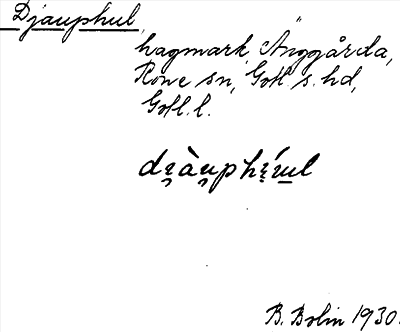 Djauphul,
hagmark, Änggårda,
Rone sn, Gotl s. hd,
Gotl. l.
B. Bolin 1930.